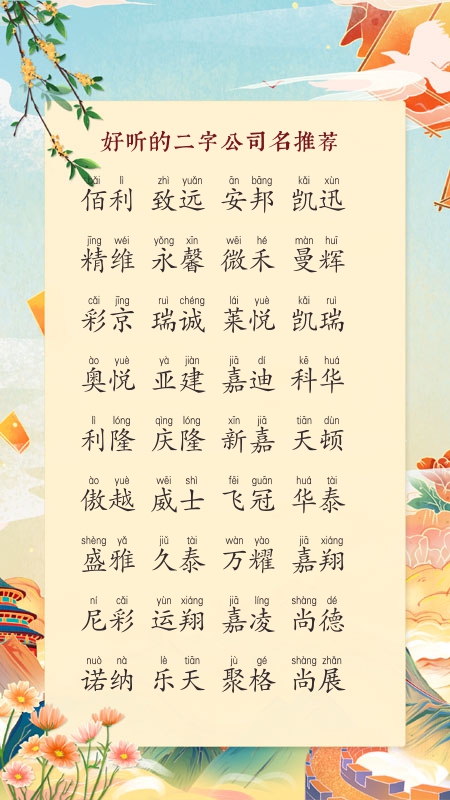 好听的二字公司名推荐
bǎi lì zhì yuǎn ān bāng kǎi xùn
佰利 致远 安邦 凯迅
jīng wéi yǒng xīn wēi hé màn huī
精维 永馨 微禾 曼辉
cǎi jīng ruì chéng lái yuè kǎi ruì
彩京 瑞诚 莱悦 凯瑞
ào yuè yà jiàn jiā dí kē huá
奥悦 亚建 嘉迪 科华
lì lóng qìng lóng xīn jiā tiān dùn
利隆 庆隆 新嘉 天顿
ào yuè wēi shì fēi guān huá tài
傲越 威士 飞冠 华泰
shèng yǎ jiǔ tài wàn yào jiā xiáng
盛雅 久泰 万耀 嘉翔
ní cǎi yùn xiáng jiā líng shàng dé
尼彩 运翔 嘉凌 尚德
nuò nà lè tiān jù gé shàng zhǎn
诺纳 乐天 聚格 尚展